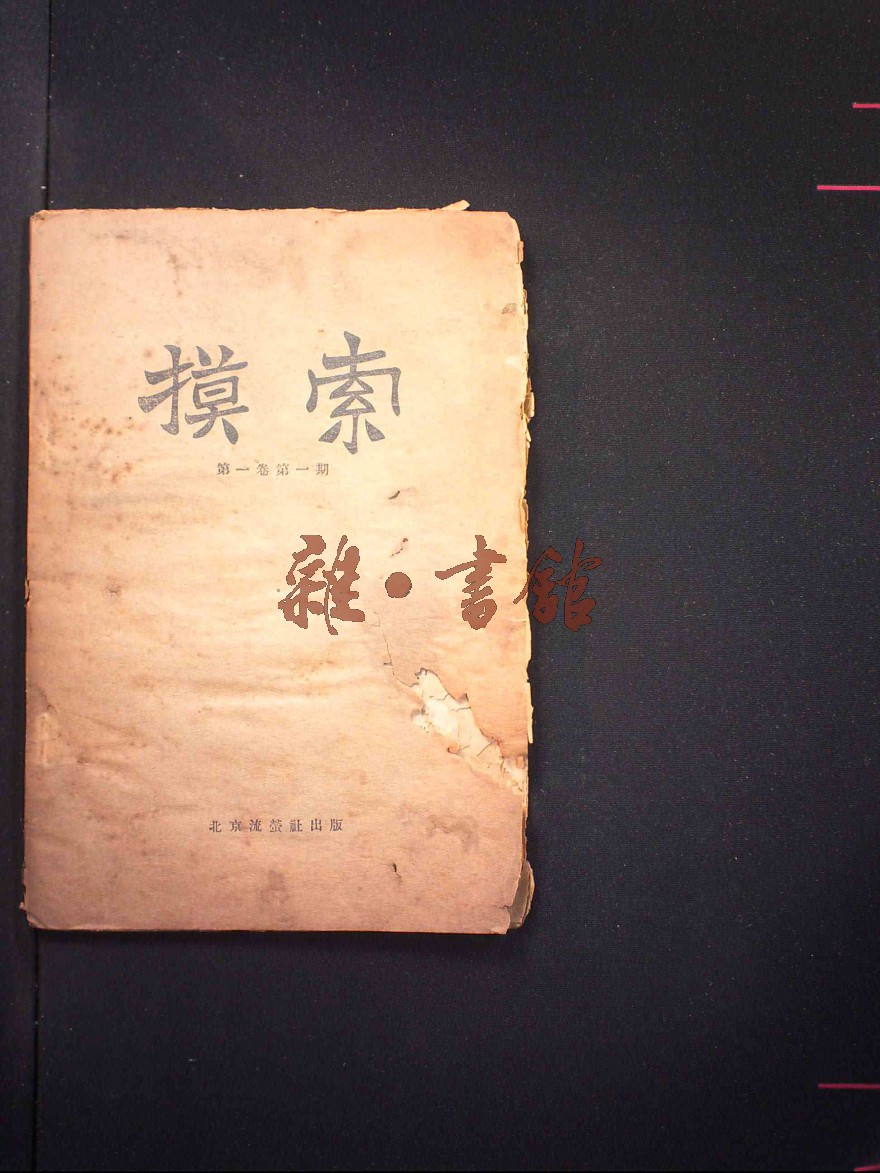 摸索
第一卷第一期
雜·書館
北京流螢社出版